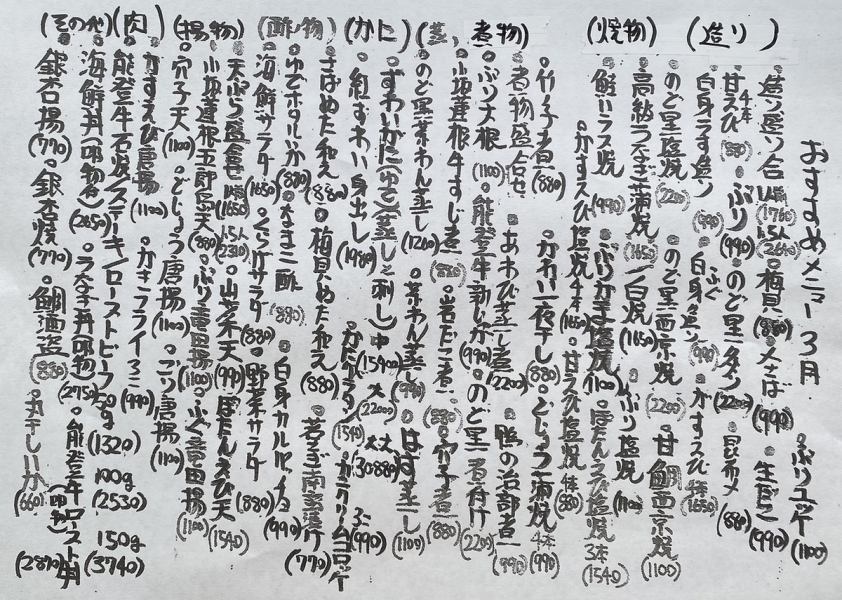 おすすめメニュー 3月
(造り)
造り盛り合 1人前(1760) 1.5人(2640)。梅貝(880)。〆さば(990)。生だこ(990)。ぶりユッケ(1100)
甘えび 4本(880)。ぶり(990)。のど黒タタキ(2200)。昆布〆(880)
白身うす造り(990)。白身ふぐ造り(990)。かすえび 4本(1650)
(焼物)
のど黒塩焼(2200)。のど黒西京焼(2200)。甘鯛西京焼(1100)
高級うなぎ蒲焼(1650)/白焼(1650)。ぶり塩焼(1100)
鰤ハラス焼(990)。ぶりかま塩焼(1100)。ぼたんえび塩焼 3本(1540)
。かすえび塩焼 4本(1650)。甘えび塩焼 4本(880)
。かれい一夜干し(880)。どじょう蒲焼 4本(990)
(煮物)
。竹の子煮(880)
。煮物盛合せ。あわび蒸し煮(2200)。鴨の治部煮(990)
。ぶり大根(1100)。能登牛すじ煮(990)。のど黒煮付け(2200)
。小坂蓮根牛すじ煮(880)。岩だこ煮(880)。穴子煮(880)
(蒸)
。のど黒茶わん蒸し(1260)。茶わん蒸し(990)。はす蒸し(1100)
(かに)
。ずわいがに(ゆで)(蒸し)(刺し)中(15400) 大(22000) 大大(30800)
。紅ずわい身出し(1980)。かにグラタン(1540)。カニクリームコロッケ 3コ(990)
(酢物)
。さばぬた和え(880)。梅貝ぬた和え(880)
。ゆでホタルいか(880)。なまこ酢(880)。白身カルパッチョ(990)
。海鮮サラダ(1650)。くらげサラダ(880)。野菜サラダ(880)
(揚物)
。天ぷら盛合せ 1人前(1650) 1.5人(2310)。山菜天(990)。ぼたんえび天(1540)
。小坂蓮根五郎島天(880)。ぶり竜田揚(1100)。ふぐ竜田揚(1100)
。穴子天(1100)。どじょう唐揚(1100)。ごり唐揚(1100)
。かすえび唐揚(1100)。かきフライ 3コ(990)
(肉)
。能登牛石焼/ステーキ/ローストビーフ 50g(1320) 100g(2530) 150g(3740)
(その他)
。海鮮丼(吸物付)(2850)。うなぎ丼 吸物(2750)。能登牛ロースト丼(吸物付)(2870)
。銀杏揚(770)。銀杏焼(770)。鯛酒盗(880)。丸干しいか(660)